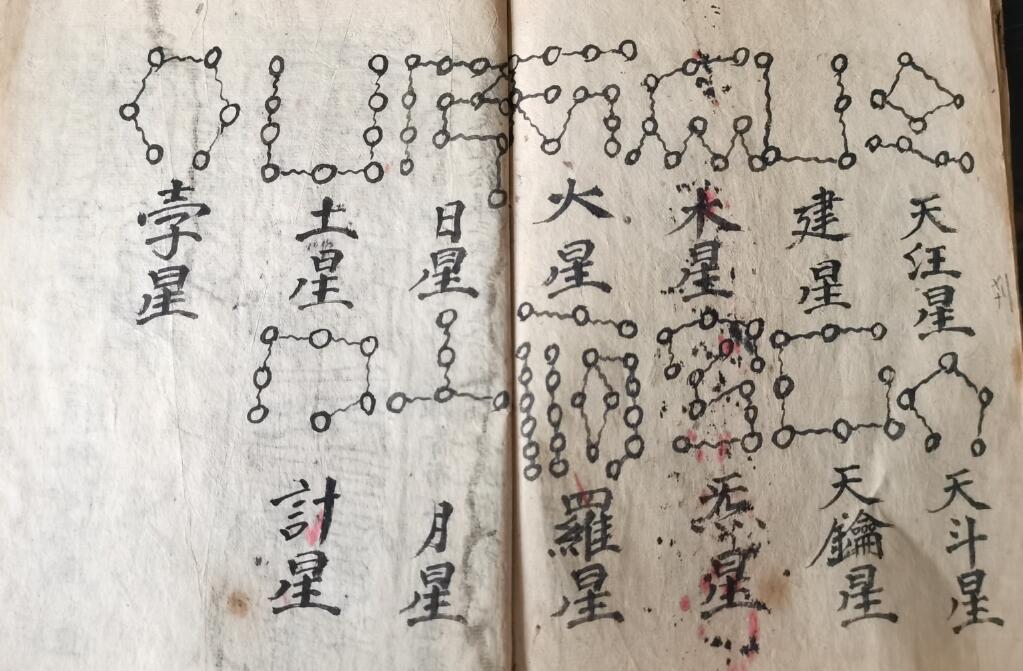 天汪星
建星
木星
火星
日星
土星
孛星
天斗星
天鑰星
炁星
羅星
月星
計星